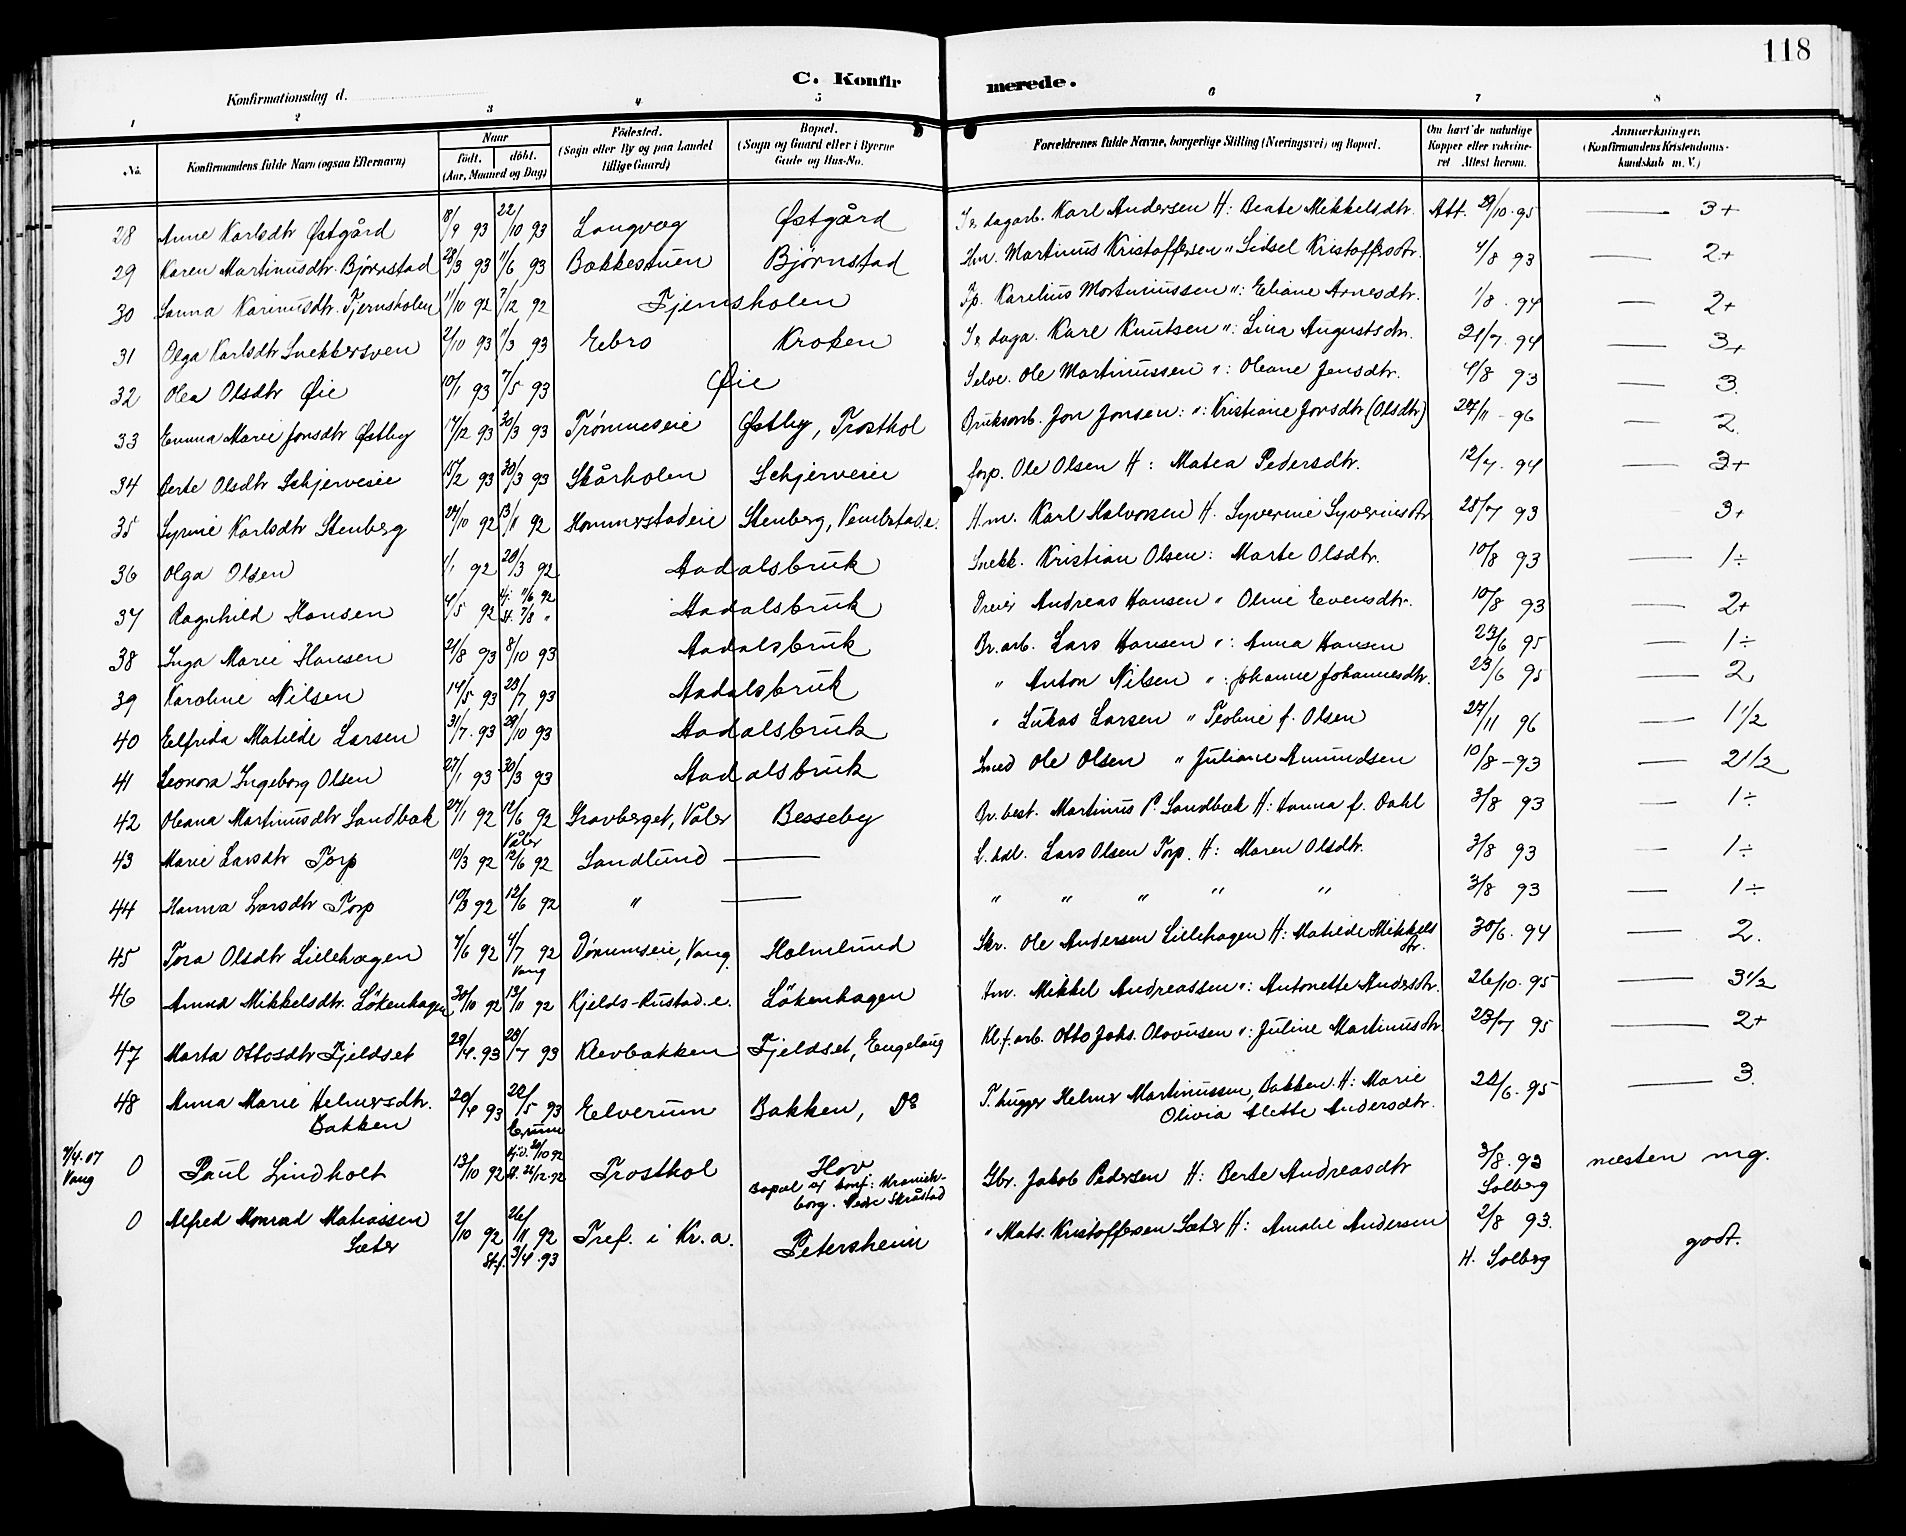 118
C. Konfirmerede.
Konfirmationsdag d.
1 2 3 4 5 6 7 8
No. Konfirmandens fulde Navn (ogsaa Efternavn) Naar født. døbt. (Aar, Maaned og Dag) Fødested. (Sogn eller By og paa Landet tillige Gaard) Bopæl. (Sogn og Gaard eller i Byerne Gade og Hus-No. Forældrenes fulde Navne, borgerlige Stilling (Næringsvei) og Bopæl. Om havt de naturlige Kopper eller vaccineret Attest herom. Anmærkninger. (Konfirmandens Kristendomskundskab m. V.)
28 Anne Karlsdtr Østgård 8/9 93 22/10 93 Langvæg Østgård Karl Andersen H: Beate Mikkelsdtr. Att. 29/10. 95 — 3+
29 Karen Martinusdtr. Bjørnstad 28/3 93 11/6 93 Bakkestuen Bjørnstad Hm. Martinus Kristoffersen " Sidsel Kristoffersdtr. 4/8 93 — 2+
30 Sanna Karinusdtr. Tjernsholen 11/10 92 7/12 92 Tjernsholen Karelius Mortinussen ": Eliane Arnesdtr. 1/8. 94 — 2+
31 Olga Karlsdtr Snekkersven 2/10 93 11/3 93 Ebro Kroken Karl Knutsen ": Lina Augustsdtr. 21/7. 94 — 3+
32 Olea Olsdtr Øie 10/1 93 7/5 93 Øie Selve. Ole Martinussen ": Oleane Jensdtr. 4/8 93 — 3.
33 Emma Marie Jonsdtr Østby 17/12 93 30/3 93 Trømneseie Østby, Trosthol Bruksarb. Jon Jonsen: ": Kristiane Jonsdtr (Olsdtr) 27/11 - 96 — 2.
34 Berte Olsdtr Schjerveeie 15/2 93 30/3 93 Skårholen Schjerveeie forp. Ole Olsen H: Matea Pedersdtr. 12/7. 94 — 3+
35 Syrine Karlsdtr Stenberg 27/10 92 13/11 92 Hommerstadeie Stenberg, Vembstad.e. H.m. Karl Halvorsen H. Syverine Syverinsdtr 28/7 93 3+
36 Olga Olsen 1/1 92 20/3 92 Aadalsbruk Snekk. Kristian Olsen: Marte Olsdtr. 10/8 93 — 1÷
37 Ragnhild Hansen 4/5 92 hj. 11/6 92 st. 7/8 " Aadalsbruk Dreier Andreas Hansen " Oline Evensdtr. 10/8 93 — 2+
38 Inga Marie Hansen 21/8 93 8/10 93 Aadalsbruk Br. arb. Lars Hansen ": Anna Hansen 23/6 95 — 1÷
39 Karoline Nilsen 14/5 93 23/7 93 Aadalsbruk " Anton Nilsen ": Johanne Johannesdtr. 23/6 95 — 2,
40 Elfrida Matilde Larsen 31/7. 93 29/10 93 Aadalsbruk " Lukas Larsen " Teoline f. Olsen 27/11 96 — 1 1/2
41 Leonora Ingeborg Olsen 27/1 93 30/3 93 Aadalsbruk Smed Ole Olsen " Juliane Amundsen 10/8 - 93 — 2 1/2
42 Oleana Martinusdtr Sandbæk 27/1 92 12/6 92 Våler Gravberget, Våler Besseby Br. best. Martinus P. Sandbæk H: Hanna f. Dahl 3/8 93 — 1÷
43 Marie Larsdtr Torp 10/3 92 12/6 92 Sandlund — L. hdl. Lars Olsen Torp. H: Maren Olsdtr. 3/8 93 — 1÷
44 Hanna Larsdtr Torp 10/3 92 12/6 92 " — " " " " " 3/8 93 — 1÷
45 Tora Olsdtr Lillehagen 7/6 92 4/7 92 Vang Dørumseie, Vang. Holmlund Skr. Ole Andersen Lillehagen H: Matilde Mikkelsdtr. 30/6. 94 — 2.
46 Anna Mikkelsdtr. Løkenhagen 30/10 92 13/11 92 Kjelds-Rustad.e. Løkenhagen Hm. Mikkel Andreassen ": Antonette Andersdtr. 26/10. 95 — 3 1/2
47 Marta Ottosdtr Fjeldset 29/4. 93 23/7 93 Klevbakken Fjeldset, Engelaug Kl.f. arb. Otto Johs. Olavusen ": Juline Martinusdtr. 23/7 95 — 2+
48 Anna Marie Helmersdtr. 20/4 93 22/5 93 Elverum Bakken, Do T. hugger Helmer Martinussen, Bakken. H: Marie 22/6. 95 — 3.
Bakken Olivia Alette Andersdtr.
7/4. 07 Vang 0 Paul Lindholt 13/10 92 hjd. 20/10 92 st. 26/12. 92 Trosthol Hov Gbr. Jakob Pedersen H: Berte Andreasdtr 3/8. 93 Solberg næsten mg.
0 Alfred Monrad Matiassen 2/10 92 26/11 92 Tref. i Kr.a. Petersheim " Mats. Kristoffersen Sæter H: Amalie Andersen 2/8 93. godt.
Sæter St.f. 3/4. 93 H. Solberg